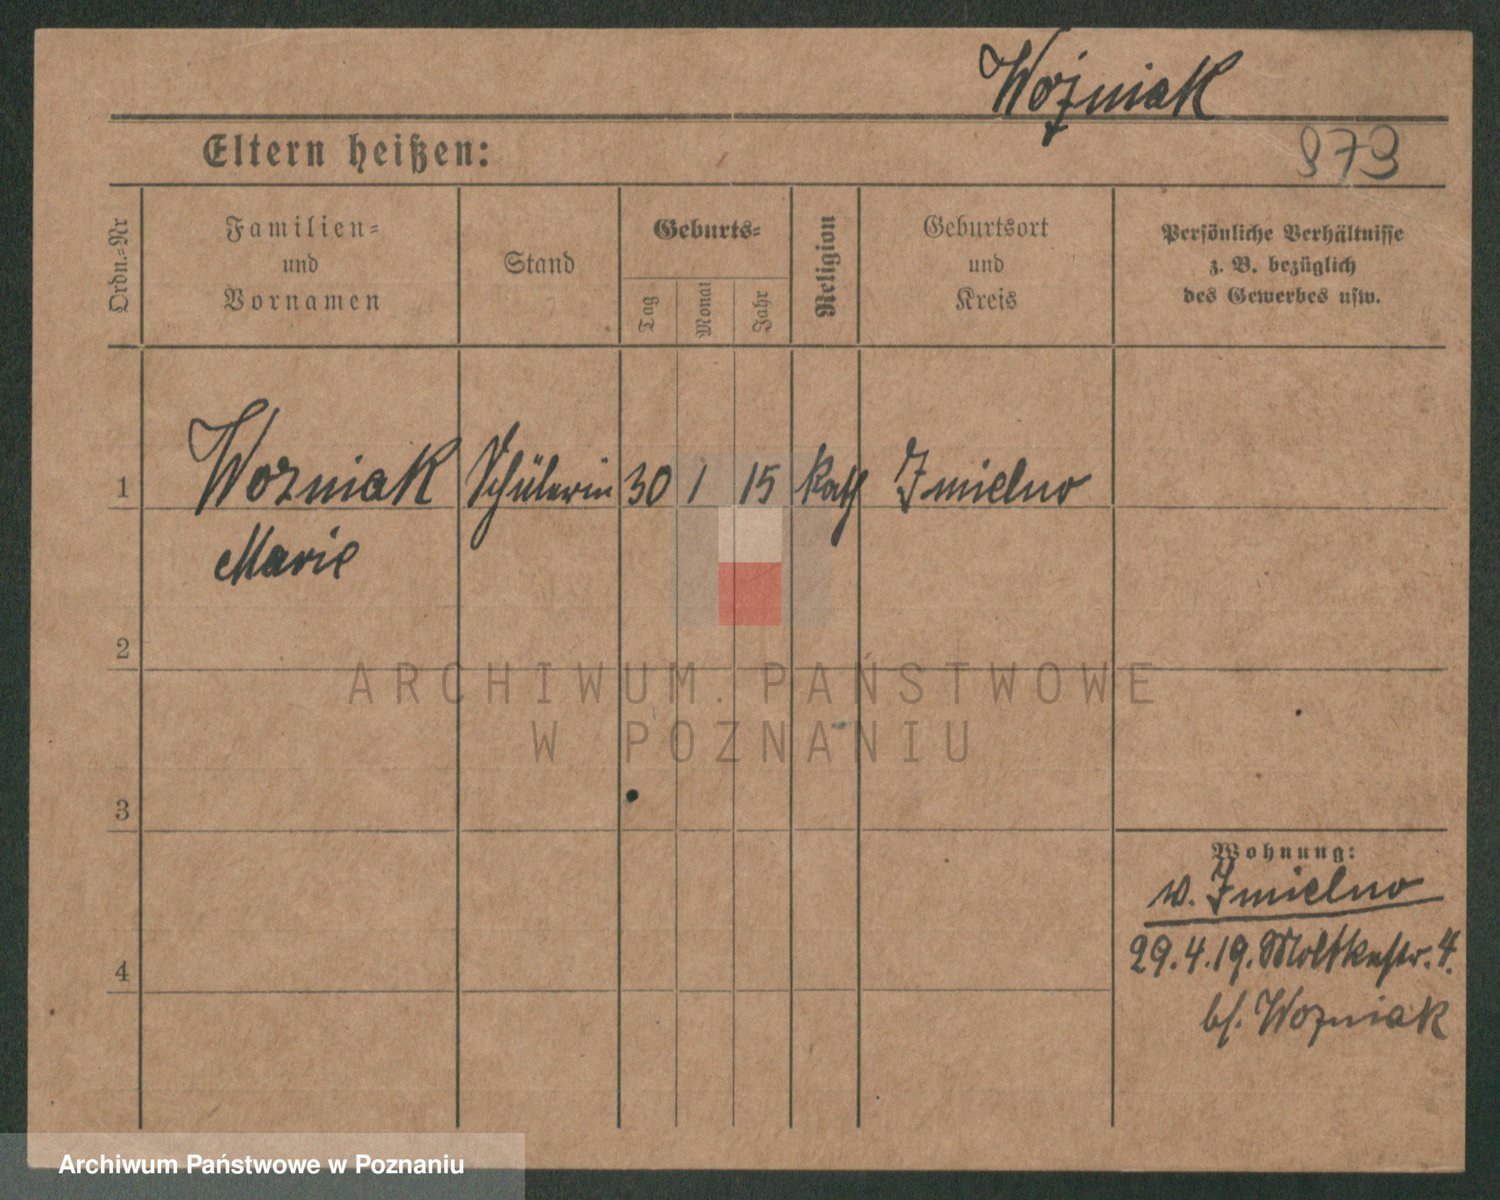 Woźniak
Eltern heißen:
973
Ordn.-Nr
Familien-
und
Vornamen
Stand
Geburts-
Tag
Monat
Jahr
Religion
Geburtsort
und
Kreis
Persönliche Verhältnisse
z. B. bezüglich
des Gewerbes usw.
1 Wozniak Schülerin 30 1 15 kath Imielno
Marie
2
ARCHIWUM PAŃSTWOWE
W POZNANIU
3
Wohnung:
v. Imielno
29.4.19. Moltkestr. 4.
4
bf. Wozniak
Archiwum Państwowe w Poznaniu